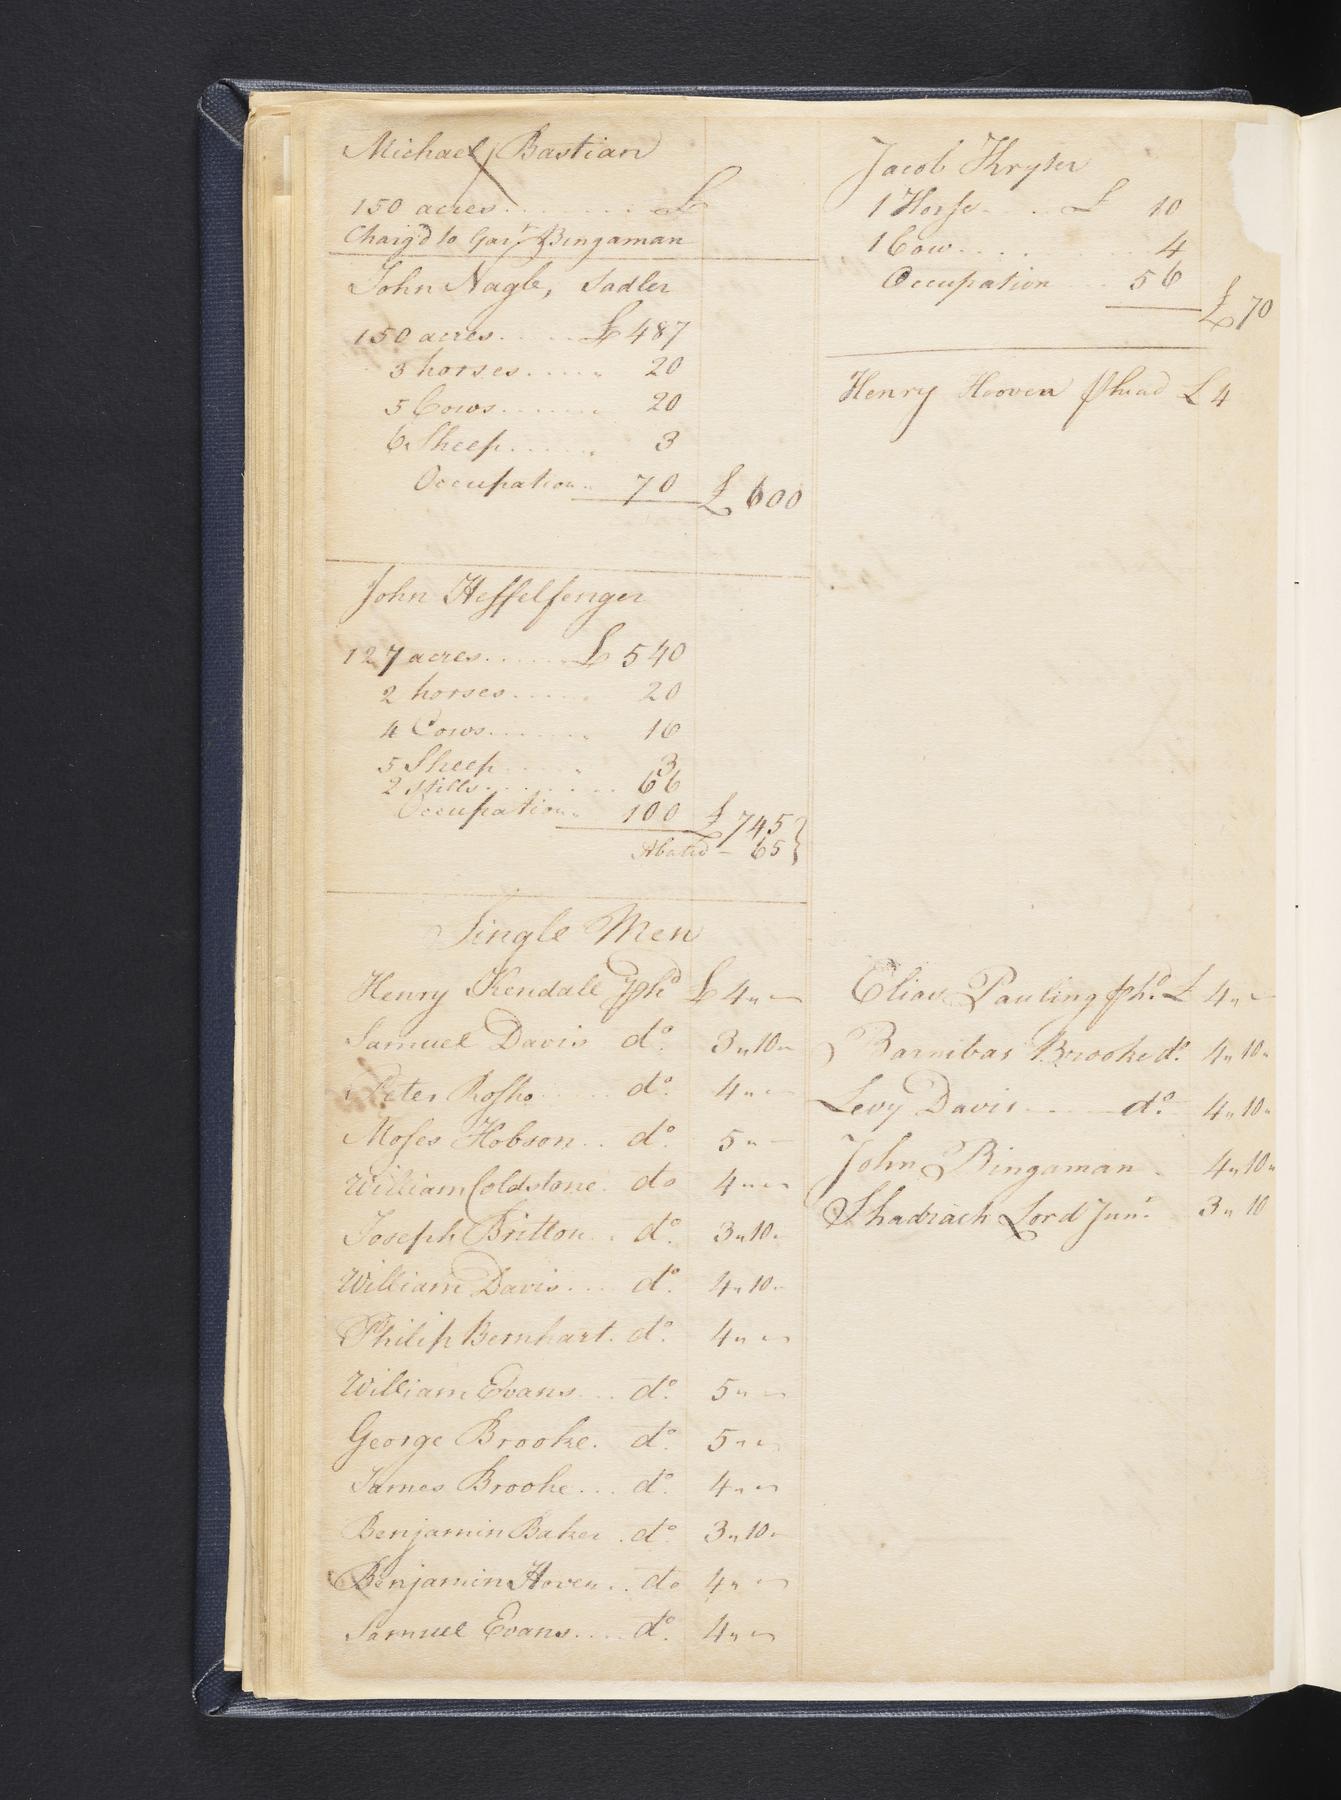 Michael Bastian
150 acres.......... £
Charg'd to Gart. Bingaman
John Nagle, Sadler
150 acres..... £ 487
3 horses..... 20
5 Cows....... 20
6 Sheep...... 3
Occupation.. 70 £ 600
John Heffelfenger
127 acres...... £ 540
2 horses..... 20
4 Cows....... 16
5 Sheep..... 3
2 Stills....... 66
Occupation.. 100 £ 745
Abated - 65
Single Men
Henry Kendall phd £ 4 〃 -
Samuel Davis do. 3 〃 10 〃
Peter Rosho...... do. 4 〃 -
Moses Hobson.. do. 5 〃 -
William Coldstone. do 4 〃 -
Joseph Britton.. do. 3 〃 10 〃
William Davis... do. 4 〃 10 〃
Philip Bernhart. do. 4 〃 -
William Evans... do. 5 〃 -
George Brooke. do. 5 〃 -
James Brooke... do. 4 〃 -
Benjamin Baker. do 3 〃 10 〃
Benjamin Hoven.. do 4 〃 -
Samuel Evans.... do. 4 〃 -
Jacob Kryter
1 Horse..... £ 10
1 Cow......... 4
Occupation .. 56
£ 70
Henry Hooven £ 4
Elias Pauling phd. £ 4 〃 -
Barnibas Brooke do. 4 〃 10 〃
Levy Davis ..... do. 4 〃 10 〃
John Bingaman . 4 〃 10 〃
Shadrach Lord Junr. 3 〃 10